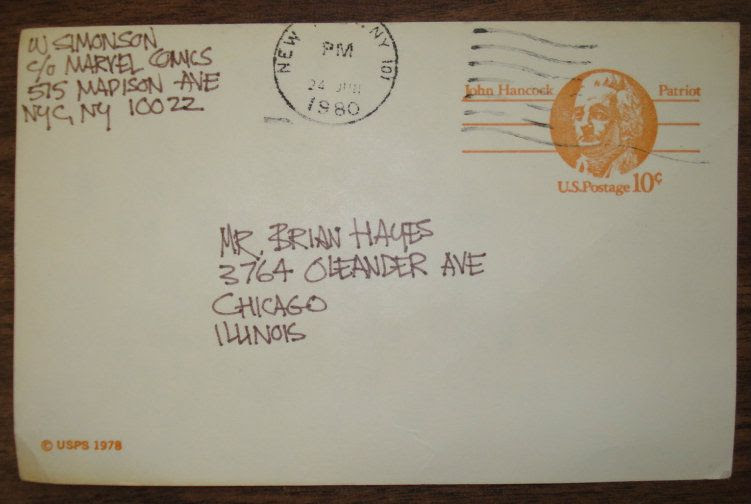 W SIMONSON
c/o MARVEL COMICS
575 MADISON AVE
NYC, NY 10022
NEW NY 101
PM
24 JUN
1980
John Hancock Patriot
U.S. Postage 10¢
MR. BRIAN HAYES
3764 OLEANDER AVE
CHICAGO
ILLINOIS
© USPS 1978